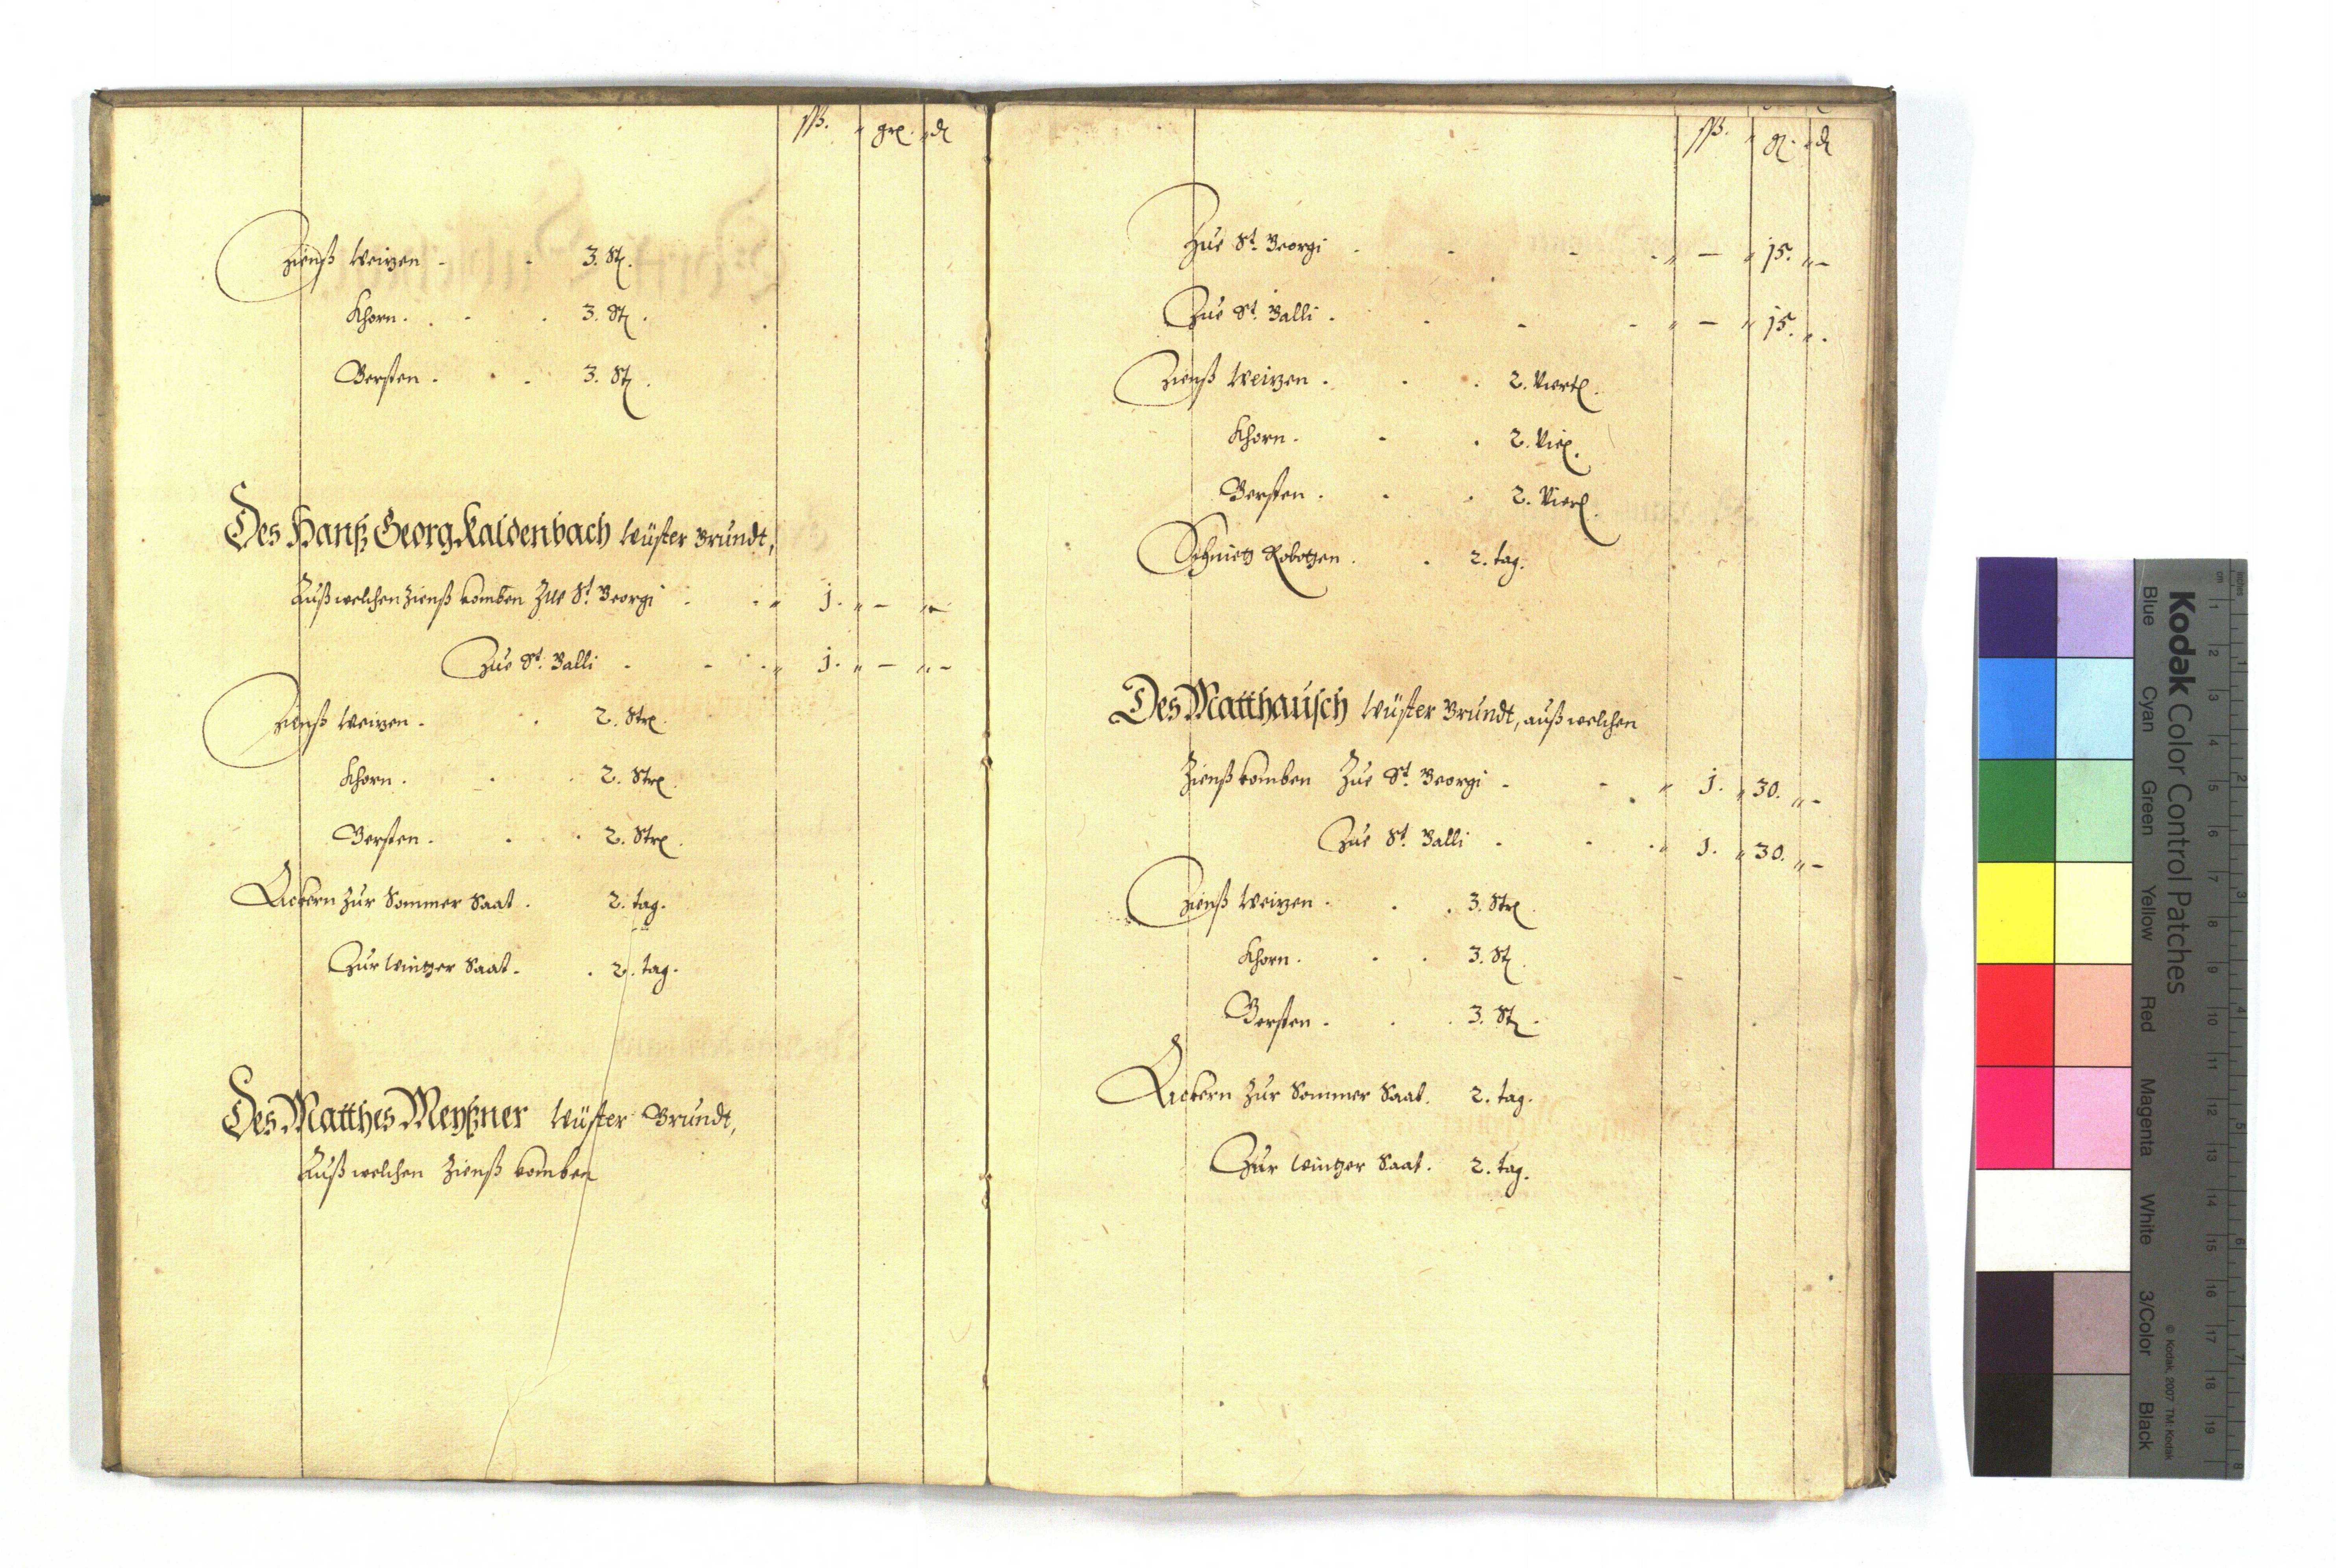 ßß. grl. dl
Zienß Weitzen - - 3. Stl.
Khorn. - . 3. Stl.
Gersten. . - 3. Stl.
Des Hanß Georg Kaldenbach Wüster Grundt,
Auß welchen Zienß komben Zue St. Georgi - - " 1. " - " -
Zue St. Galli - - - " 1. " - " -
Zienß Weitzen. . 2. Strl.
Khorn. . . 2. Strl.
Gersten. . . 2. Strl.
Ackern Zur Sommer Saat. 2. tag.
Zur Winter Saat. . 2. tag.
Des Matthes Meyßner Wüster Grundt,
Auß welchen Zienß komben
ßß. gl. dl
Zue St. Georgi - - - - " - " 15. " -
Zue St. Galli. - - - " - " 15. " .
Zienß Weitzen. . . 2. Viertl.
Khorn. - . 2. Viel.
Gersten. - . 2. Vierl.
Schnietz Robotzen. . 2. tag.
Des Matthausch Wüster Grundt, auß welchen
Zienß komben Zue St. Georgi - - " 1. " 30. " -
Zue St. Galli - - - " 1. " 30. " -
Zienß Weitzen. . . 3. Strl.
Khorn. . . 3. Stl.
Gersten. . . 3. Stl.
Ackern Zur Sommer Saat. 2. tag.
Zur Winter Saat. 2. tag.
Kodak Color Control Patches
Blue Cyan Green Yellow Red Magenta White 3/Color Black
© Kodak, 2007 TM: Kodak
inches 1 2 3 4 5 6 7 8
cm 1 2 3 4 5 6 7 8 9 10 11 12 13 14 15 16 17 18 19